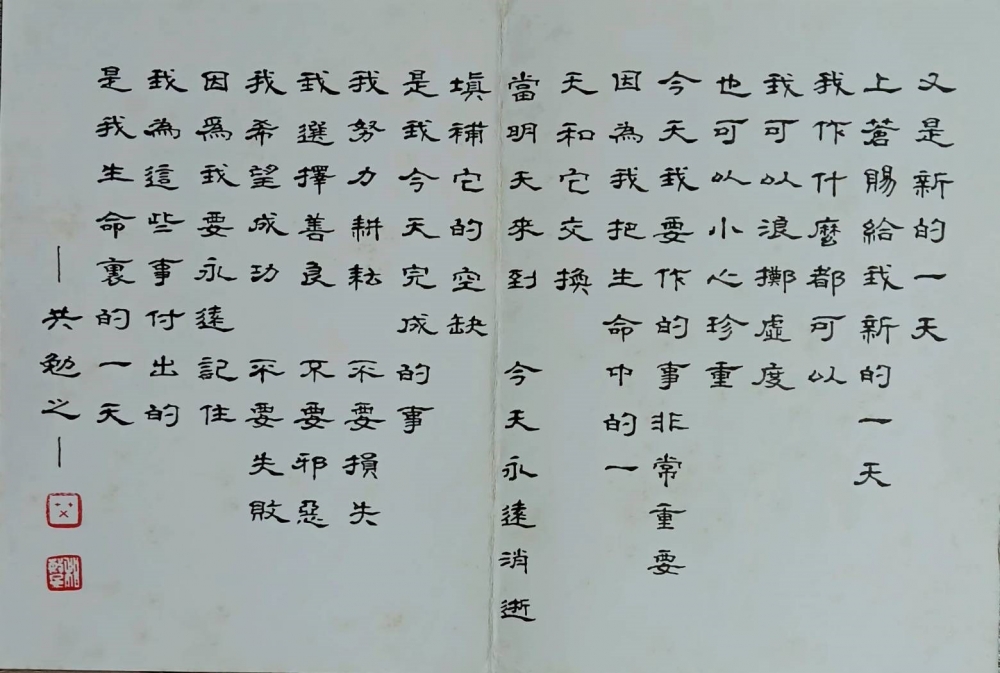 又是新的一天
上蒼賜給我新的一天
我作什麼都可以
我可以浪擲虛度
也可以小心珍重
今天我要作的事非常重要
因為我把生命中的一
天和它交換
當明天來到 今天永遠消逝
填補它的空缺
是我今天完成的事
我努力耕耘 不要損失
我選擇善良 不要邪惡
我希望成功 不要失敗
因爲我要永遠記住
我為這些事付出的
是我生命裏的一天
—共勉之—